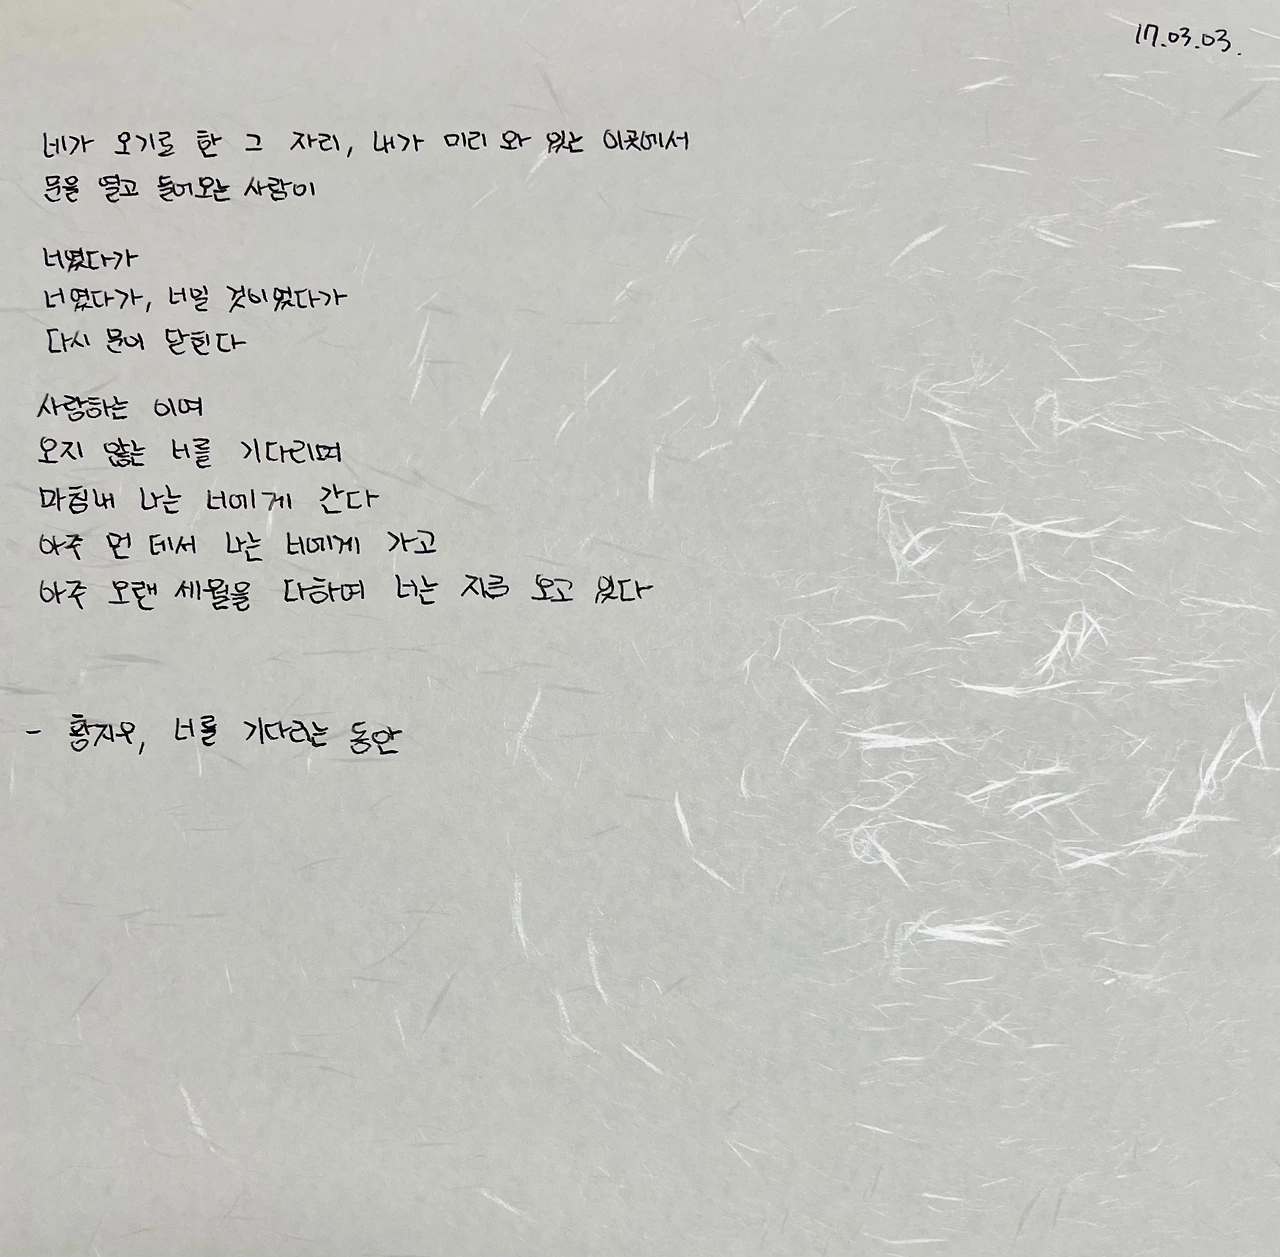 17.03.03.
네가 오기로 한 그 자리, 내가 미리 와 있는 이곳에서
문을 열고 들어오는 사람이
너였다가
너였다가, 너일 것이었다가
다시 문이 닫힌다
사랑하는 이여
오지 않는 너를 기다리며
마침내 나는 너에게 간다
아주 먼 데서 나는 너에게 가고
아주 오랜 세월을 다하여 너는 지금 오고 있다
- 황지우, 너를 기다리는 동안